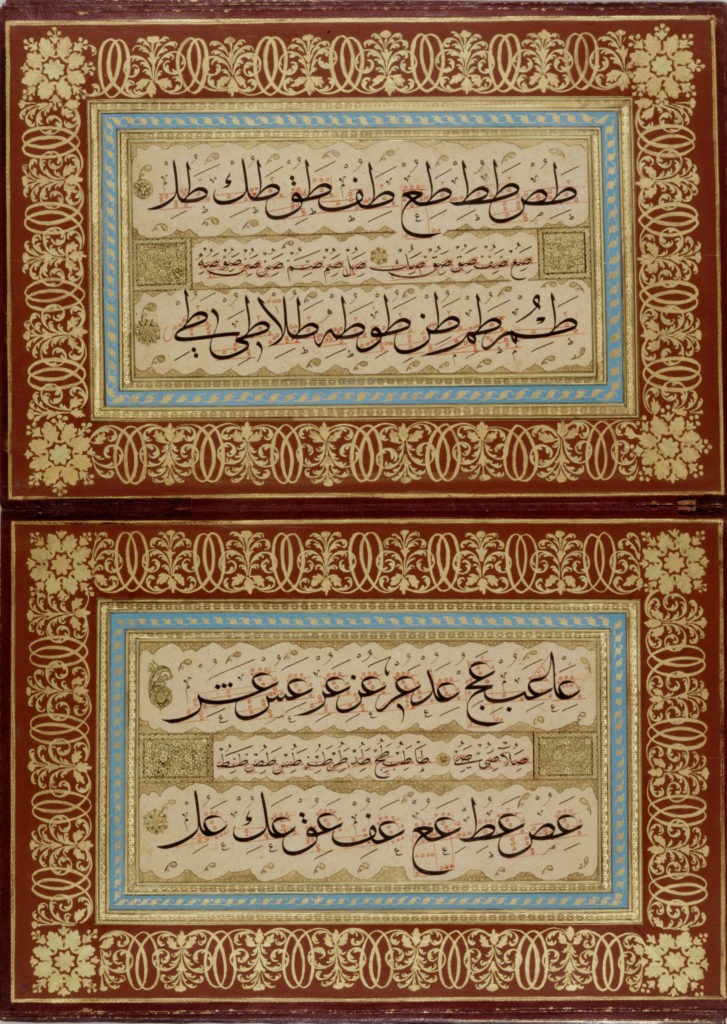 طص طط طع طف طق طك طل
صع صف صق صك صل صم صم صن صو صه
طم طم طن طو طه طلا طى طے
عا عب عج عد عر عر عر عس عس
صلا صى صے طا طب طج طد طر طر طس طص طط
عص عط عع عف عق عك عل